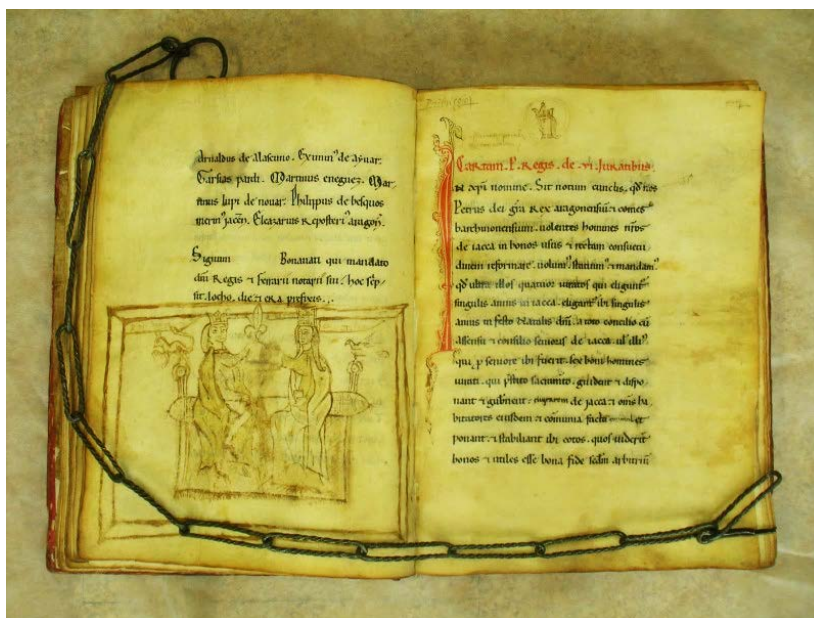 Arnaldus de Alascuno. Eximin⁹ de aẏuar.
Garsias pardi. Martinus eneguez. Mar
tinus lupi de nouar. Philipus de besquos
merin⁹ jaccẽ. Eleazarus Reposteri⁹ aragoñ.
Signum Bonanati qui mandato
dñi Regis ⁊ ferrarii notarii sui. hoc sc̃p
sit. locho. die ⁊ era prefixis.
Cartam. P. Regis. de .vi. Juratibus.
xp̃i nomine. Sit notum cunctis. qd̃ nos
Petrus dei gr̃a Rex aragonensiũ ⁊ comes
barchinonensium. uolentes homines nr̃os
de iacca in bonos usus ⁊ consuetu
dinem reformare. uolum⁹. statuim⁹ ⁊ mandam⁹.
qd̃ ultra illos quatuor qui eligunt̃
singulis annis in iacca. eligant̃ ibi singulis
annis in festo Natalis dñi. a toto concilio cũ
assensu ⁊ consilio senioris de iacca. ul̃ illi⁹
qui p̱ seniore ibi fuerit. sex boni homines
iurati. qui p̃stito sacram̃to. custodiant ⁊ dispo
nant ⁊ gubernent. de jacca ⁊ om̃s ha
bitatores eiusdem ⁊ cõmunia facti et
ponant. ⁊ stabiliant ibi cotos. quos uiderĩt
bonos ⁊ utiles esse bona fide scd̃m arbitriũ